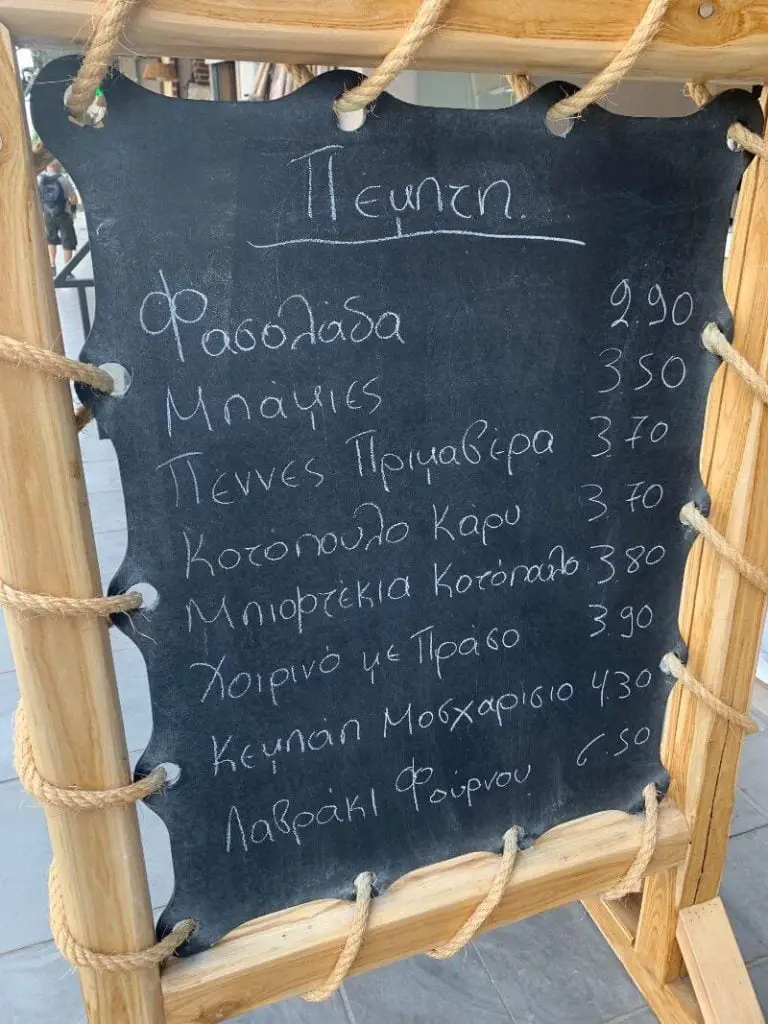 Πέμπτη
Φασολάδα 2.90
Μπάμιες 3.50
Πέννες Πριμαβέρα 3.70
Κοτόπουλο Κάρυ 3.70
Μπιφτέκια Κοτόπουλο 3.80
Χοιρινό με Πράσο 3.90
Κεμπάπ Μοσχαρίσιο 4.30
Λαβράκι Φούρνου 6.50